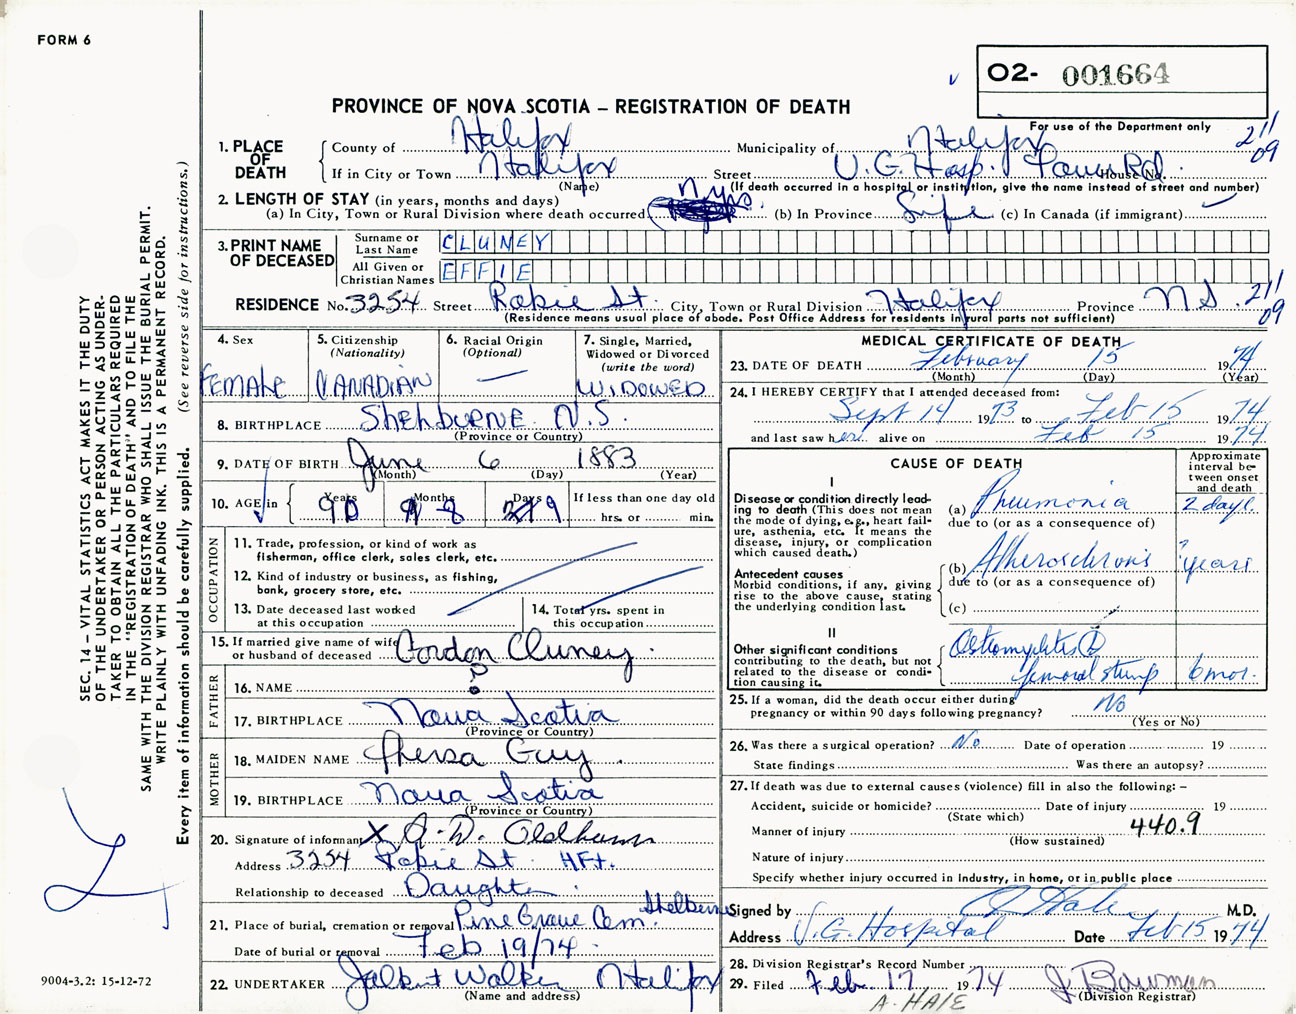 FORM 6
O2- 001664
PROVINCE OF NOVA SCOTIA – REGISTRATION OF DEATH
For use of the Department only
211
09
1. PLACE OF DEATH
County of Halifax Municipality of Halifax
If in City or Town Halifax Street V.G. Hosp. Tower Rd. House No.
(Name) (If death occurred in a hospital or institution, give the name instead of street and number)
2. LENGTH OF STAY (in years, months and days)
(a) In City, Town or Rural Division where death occurred yrs. (b) In Province Life (c) In Canada (if immigrant)
3. PRINT NAME OF DECEASED
Surname or Last Name CLUNEY
All Given or Christian Names EFFIE
RESIDENCE No. 3254 Street Robie St. City, Town or Rural Division Halifax Province N.S. 211
09
(Residence means usual place of abode. Post Office Address for residents in rural parts not sufficient)
4. Sex
FEMALE
5. Citizenship
(Nationality)
CANADIAN
6. Racial Origin
(Optional)
7. Single, Married, Widowed or Divorced
(write the word)
WIDOWED
8. BIRTHPLACE Shelburne N.S.
(Province or Country)
9. DATE OF BIRTH June 6 1883
(Month) (Day) (Year)
10. AGE in Years 90 Months 8 Days 9 If less than one day old
hrs. or min.
OCCUPATION
11. Trade, profession, or kind of work as fisherman, office clerk, sales clerk, etc.
12. Kind of industry or business, as fishing, bank, grocery store, etc.
13. Date deceased last worked at this occupation
14. Total yrs. spent in this occupation
15. If married give name of wife or husband of deceased Gordon Cluney.
FATHER
16. NAME ?
17. BIRTHPLACE Nova Scotia
(Province or Country)
MOTHER
18. MAIDEN NAME Thersa Guy
19. BIRTHPLACE Nova Scotia
(Province or Country)
20. Signature of informant X
Address 3254 Robie St. Hfx.
Relationship to deceased Daughter.
21. Place of burial, cremation or removal Pine Grove Cem. Shelburne
Date of burial or removal Feb 19/74.
22. UNDERTAKER Walker Halifax
(Name and address)
MEDICAL CERTIFICATE OF DEATH
23. DATE OF DEATH February 15 1974
(Month) (Day) (Year)
24. I HEREBY CERTIFY that I attended deceased from:
Sept 14 1973 to Feb 15 1974
and last saw her alive on Feb 15 1974
CAUSE OF DEATH
Approximate interval between onset and death
I
Disease or condition directly leading to death (This does not mean the mode of dying, e.g., heart failure, asthenia, etc. It means the disease, injury, or complication which caused death.)
(a) Pneumonia 2 days.
due to (or as a consequence of)
Antecedent causes
Morbid conditions, if any, giving rise to the above cause, stating the underlying condition last.
(b) Atherosclerosis ? years
due to (or as a consequence of)
(c)
II
Other significant conditions
contributing to the death, but not related to the disease or condition causing it.
Osteomyelitis
femoral stump 6 mos.
25. If a woman, did the death occur either during pregnancy or within 90 days following pregnancy? No
(Yes or No)
26. Was there a surgical operation? No Date of operation 19
State findings Was there an autopsy?
27. If death was due to external causes (violence) fill in also the following: –
Accident, suicide or homicide? Date of injury 19
(State which)
Manner of injury 440.9
(How sustained)
Nature of injury
Specify whether injury occurred in industry, in home, or in public place
Signed by A Hale M.D.
Address V.G. Hospital Date Feb 15 1974
28. Division Registrar's Record Number
29. Filed Feb. 17 1974 J. Bowman
(Division Registrar)
A. HALE
SEC. 14 – VITAL STATISTICS ACT MAKES IT THE DUTY
OF THE UNDERTAKER OR PERSON ACTING AS UNDER-
TAKER TO OBTAIN ALL THE PARTICULARS REQUIRED
IN THE "REGISTRATION OF DEATH" AND TO FILE THE
SAME WITH THE DIVISION REGISTRAR WHO SHALL ISSUE THE BURIAL PERMIT.
WRITE PLAINLY WITH UNFADING INK. THIS IS A PERMANENT RECORD.
Every item of information should be carefully supplied. (See reverse side for instructions.)
9004-3.2: 15-12-72